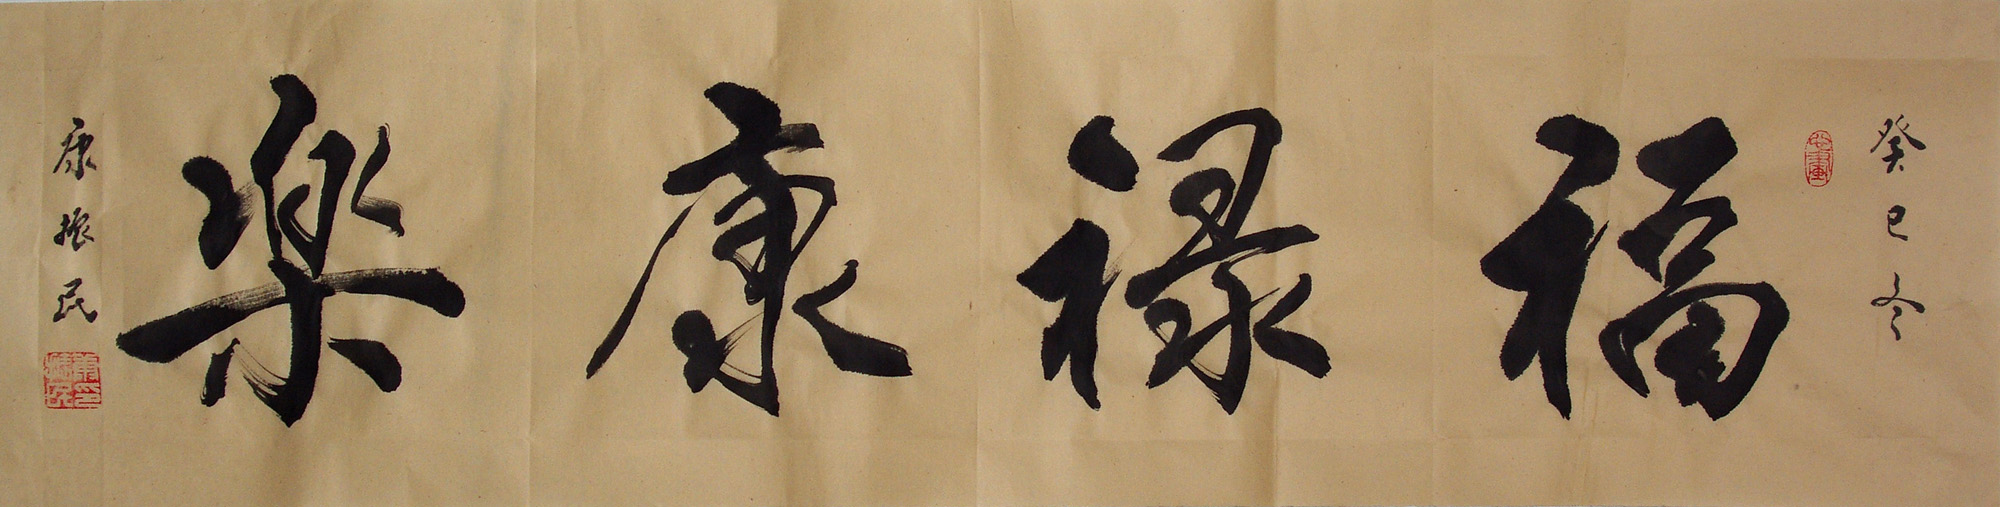 癸巳冬
福禄康樂
康振民